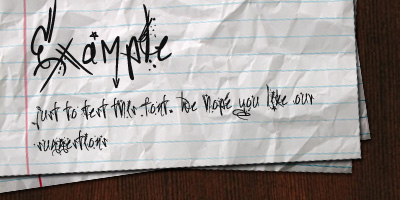 Example
just to test this font. We hope you like our
suggestions